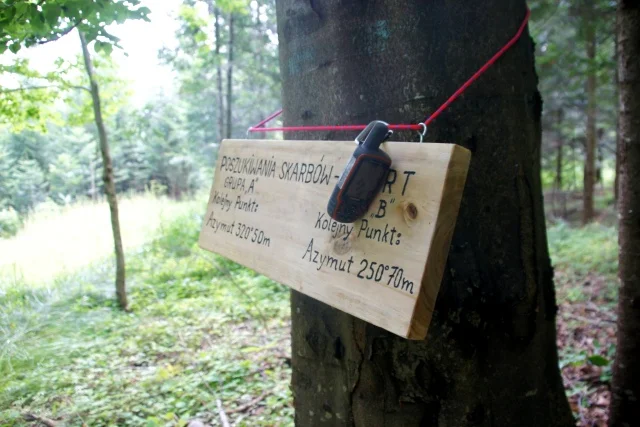 POSZUKIWANIA SKARBÓW-
GRUPA „A" „B"
Kolejny Punkt: Kolejny Punkt:
Azymut 320°50m Azymut 250°70m